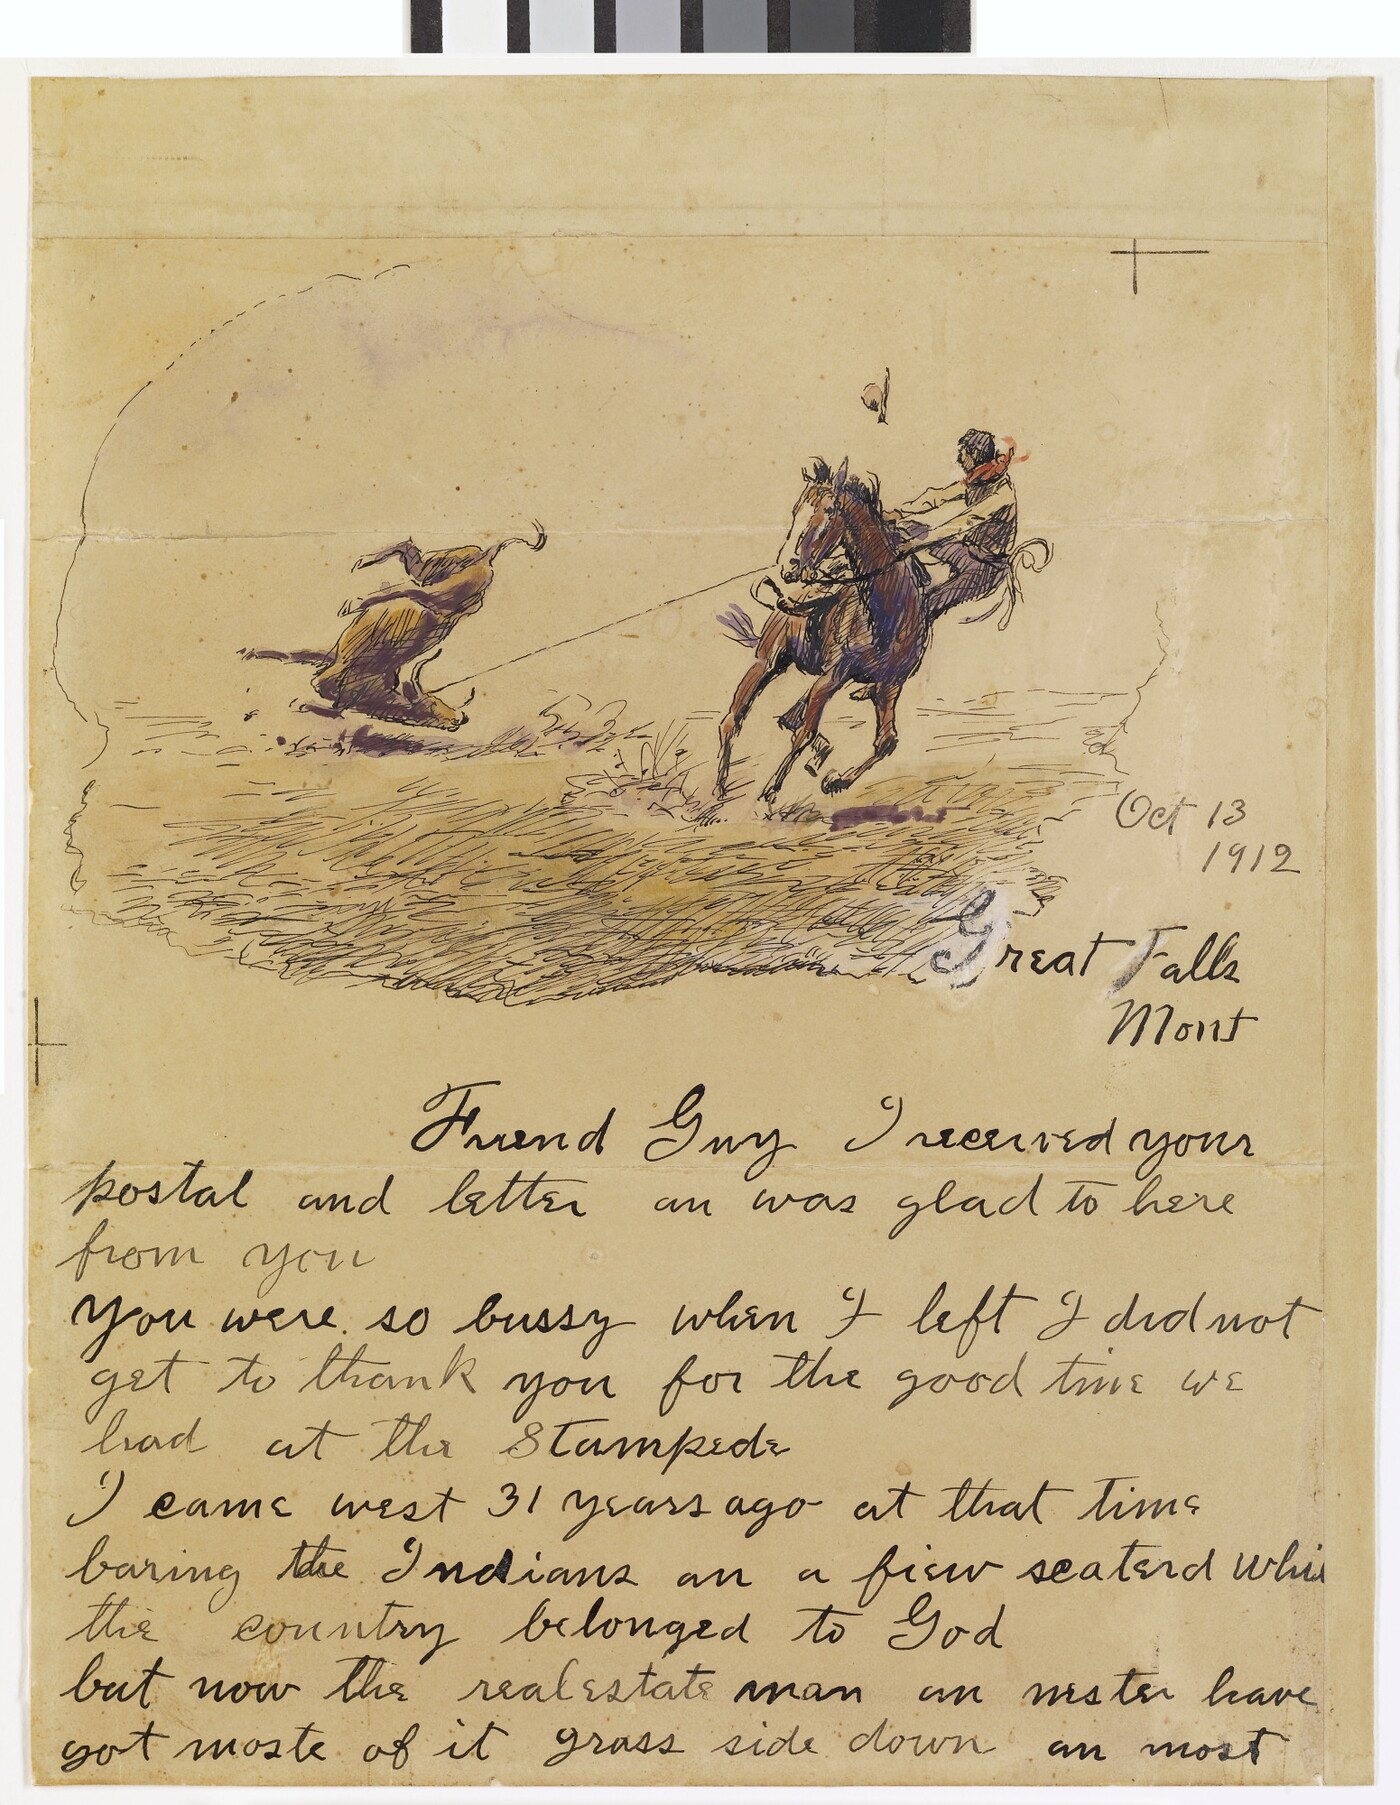 Oct 13
1912
Great Falls
Mont
Friend Guy I received your
postal and letter an was glad to here
from you
You were so bussy when I left I did not
get to thank you for the good time we
had at the Stampede
I came west 31 years ago at that time
baring the Indians an a fiew scaterd whi
the country belonged to God
but now the real estate man an nester have
got moste of it grass side down an most